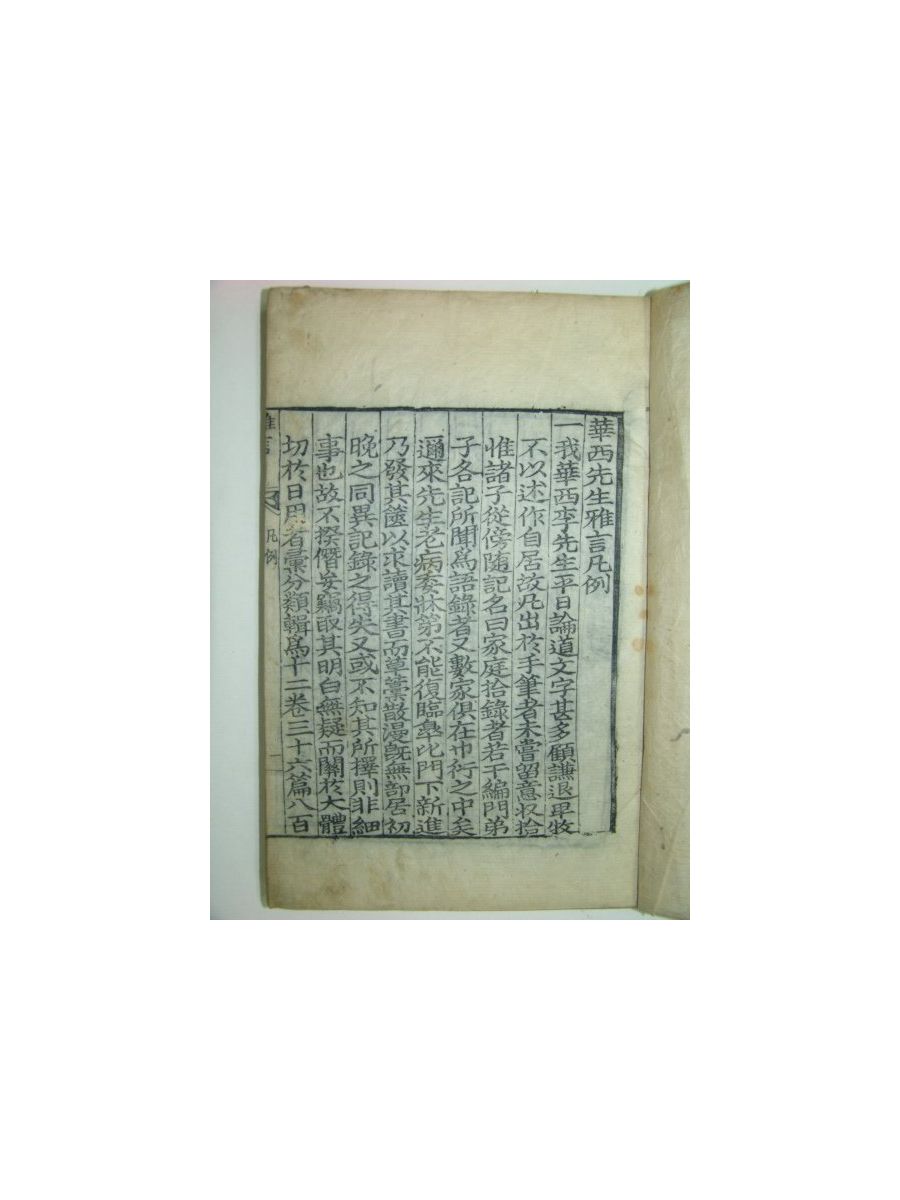 華西先生雅言凡例
一我華西李先生平日論道文字甚多顧謙退卑牧
不以述作自居故凡出於手筆者未嘗留意收拾
惟諸子從傍隨記名曰家庭拾錄者若干編門弟
子各記所聞爲語錄者又數家俱在巾衍之中矣
邇來先生老病委牀第不能復臨臯比門下新進
乃發其篋以求讀其書而草藁散漫旣無部居初
晩之同異記錄之得失又或不知其所擇則非細
事也故不揆僭妄竊取其明白無疑而關於大體
切於日用者彙分類輯爲十二卷三十六篇八百
雅言
凡例